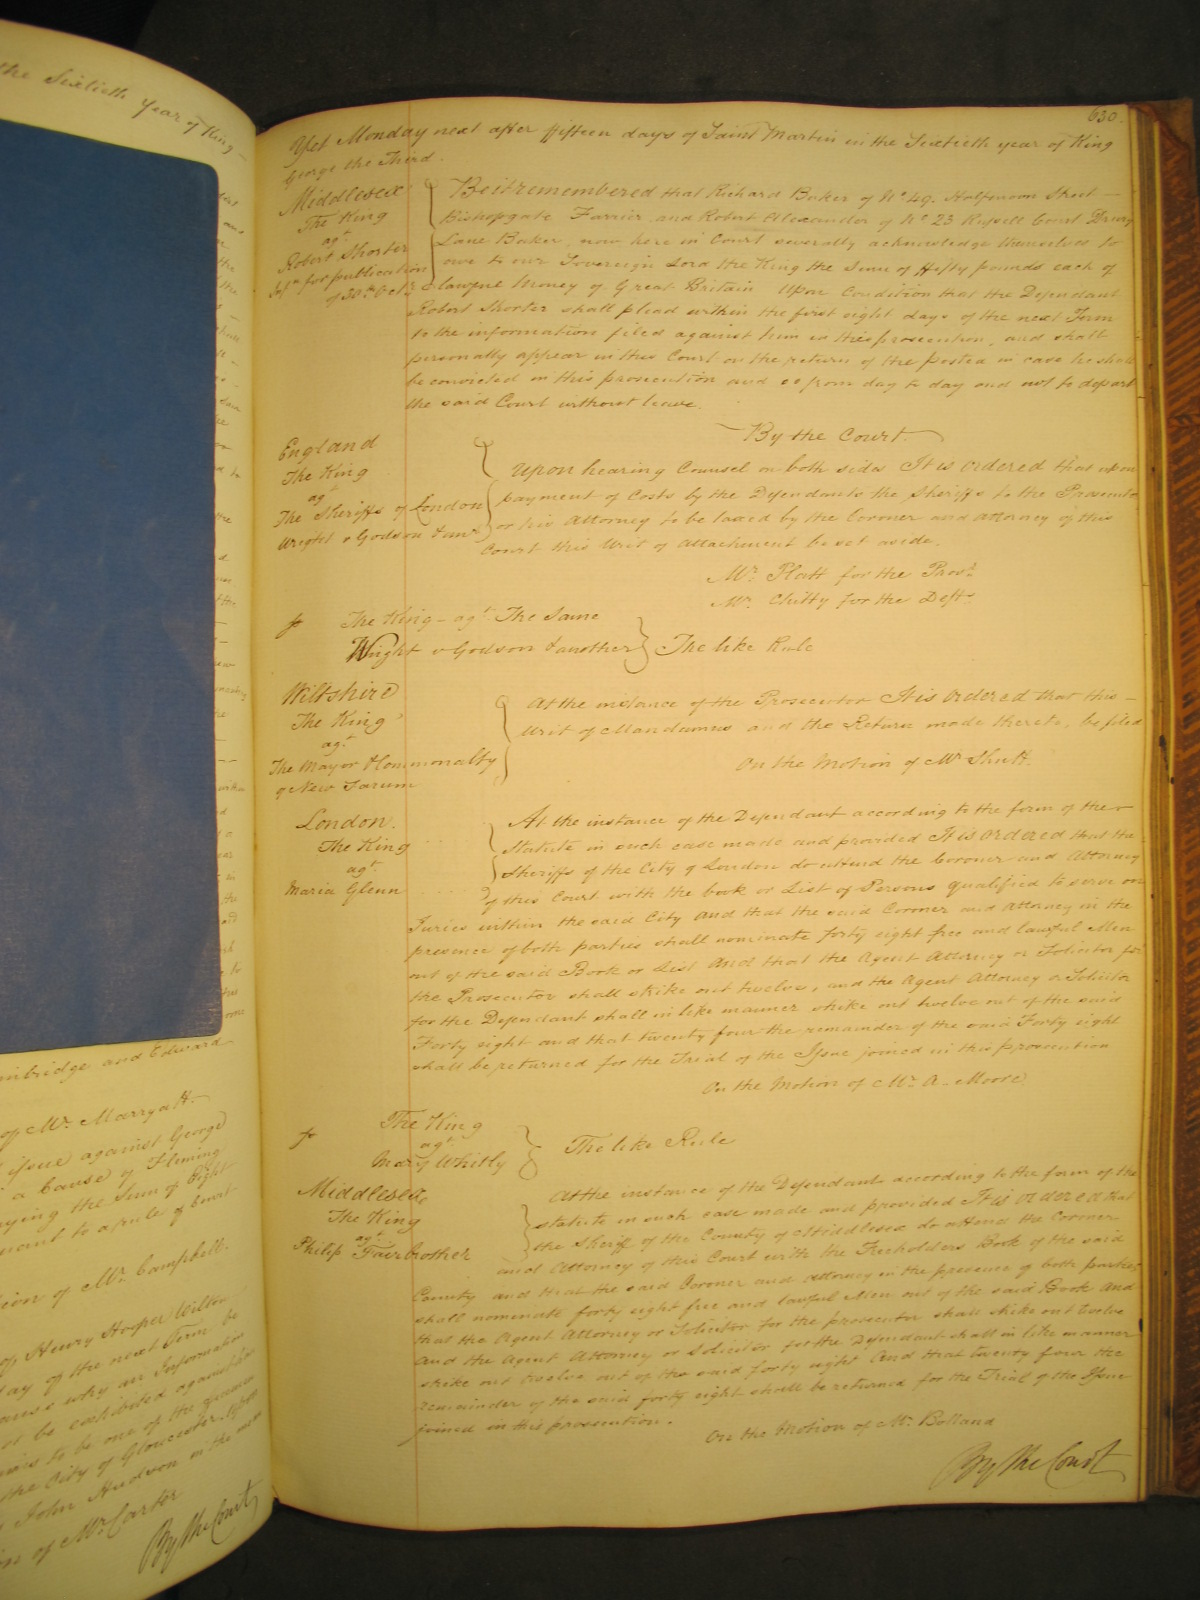 the Sixtieth Year of King
mbridge and Edward
of Mr. Marryatt.
issue against George
a Cause of Fleming
paying the Sum of Eight
to a rule of Court
of Mr. Campbell.
of Henry Hooper Wilton
day of the next Term be
why an Information
be exhibited against him
to be one of the
the City of Gloucester upon
John Hudson on the
of Mr. Carter
By the Court
630.
Yet Monday next after fifteen days of Saint Martin in the Sixtieth year of King
George the Third.
Middlesex
The King
agt.
Robert Shorter
Infn. for publication
of 30th. Octr.
Be it remembered that Richard Baker of No. 49. Halfmoon Street
Bishopgate Farrier and Robert Alexander of No. 23 Russell Court Drury
Lane Baker, now here in Court severally acknowledge themselves to
owe to our Sovereign Lord the King the Sum of fifty pounds each of
lawful Money of Great Britain Upon Condition that the Defendant
Robert Shorter shall plead within the first eight days of the next Term
to the information filed against him in this prosecution, and shall
personally appear in this Court on the return of the postea in case he shall
be convicted in this prosecution and so from day to day and not to depart
the said Court without leave.
By the Court
England
The King
agt
The Sheriffs of London
Wright v Godson & anr.
Upon hearing Counsel on both sides It is ordered that upon
payment of Costs by the Defendants the Sheriffs to the Prosecutor
or his Attorney to be taxed by the Coroner and Attorney of this
Court this Writ of Attachment be set aside.
Mr. Platt for the Prosr.
Mr. Chitty for the Deft.
The King - agt The Same
Wright v Godson & another
The like Rule
Wiltshire
The King
agt.
The Mayor & Commonalty
of New Sarum
At the instance of the Prosecutor It is ordered that this
Writ of Mandamus and the Return made thereto, be filed
On the Motion of Mr. Shutt.
London.
The King
agt.
Maria Glenn
At the instance of the Defendant according to the form of the
Statute in such case made and provided It is ordered that the
Sheriffs of the City of London do attend the Coroner and Attorney
of this Court with the book or List of Persons qualified to serve on
Juries within the said City And that the said Coroner and Attorney in the
presence of both parties shall nominate forty eight free and lawful Men
out of the said Book or List And that the Agent Attorney or Solicitor for
the Prosecutor shall strike out twelve, and the Agent Attorney or Solicitor
for the Defendant shall in like manner strike out twelve out of the said
Forty eight and that twenty four the remainder of the said Forty eight
shall be returned for the Trial of the Issue joined in this prosecution
On the Motion of Mr. A. Moore
The King
agt.
Mary Whitly
The like Rule
Middlesex
The King
agt.
Philip Fairbrother
At the instance of the Defendant according to the form of the
statute in such case made and provided It is ordered that
the Sheriff of the County of Middlesex do attend the Coroner
and Attorney of this Court with the Freeholders Book of the said
County and that the said Coroner and Attorney in the presence of both parties
shall nominate forty eight free and lawful Men out of the said Book And
that the Agent Attorney or Solicitor for the prosecutor shall strike out twelve
And the Agent Attorney or Solicitor for the Defendant shall in like manner
strike out twelve out of the said forty eight And that twenty four the
remainder of the said forty eight shall be returned for the Trial of the Issue
joined in this prosecution.
On the Motion of Mr. Bolland
By the Court